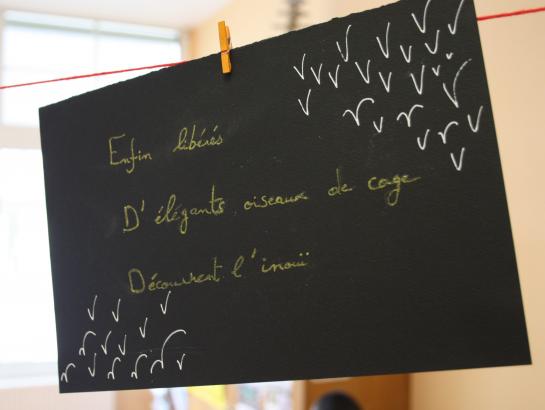 Enfin libérés
D'élégants oiseaux de cage
Découvrent l'inouï